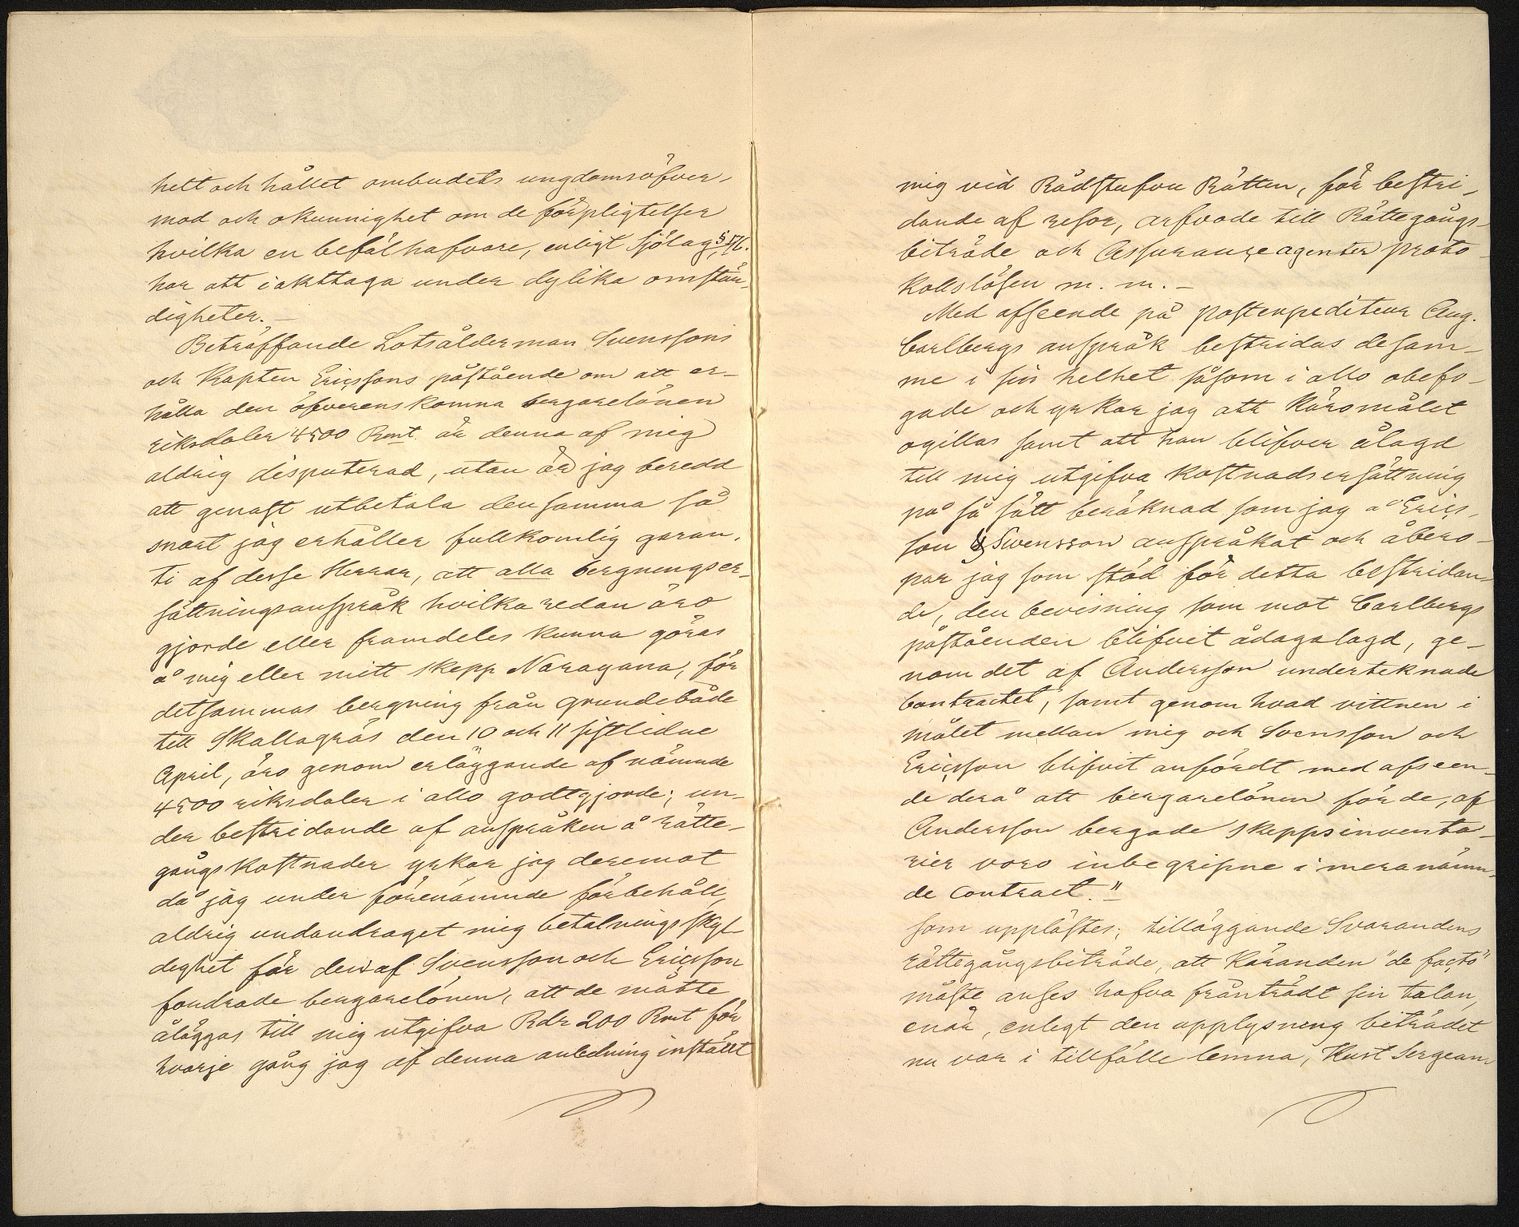 helt och hållet ombudets ungdomsöfver-
mod och okunnighet om de förpligtelser
hvilka en befälhafvare, enligt Sjölag § 76.
har att iakttaga under dylika omstän-
digheter. —
Beträffande Lotsålderman Svenssons
och Kapten Ericssons påstående om att er-
hålla den öfverenskomna bergarelönen
riksdaler 4500 Rmt är denna af mig
aldrig disputerad, utan är jag beredd
att genast utbetala densamma så
snart jag erhåller fullkomlig garan-
ti af desse Herrar, att alla bergningser-
sättningsanspråk hvilka redan äro
gjorde eller framdeles kunna göras
å mig eller mitt skepp Naragana, för
detsammas bergning från Grundebåde
till Skallagrås den 10 och 11 sistlidne
April, äro genom erläggande af nämnde
4500 riksdaler i allo godtgjorde; un-
der bestridande af anspråken å rätte-
gångskostnader yrkar jag deremot
då jag under förenämnde förbehåll,
aldrig undandraget mig betalningsskyl
dighet för den af Svensson och Ericsson
fordrade bergarelönen, att de måtte
åläggas till mig utgifva Rdr 200 Rmt för
hvarje gång jag af denna anledning instält
mig vid Rådstufvu Rätten, för bestri-
dande af resor, arfvode till Rättegångs-
biträde och Assuranceagenter proto-
kollslösen m. m. —
Med afseende på postexpediteur Aug.
Carlbergs anspråk bestridas desam-
me i sin helhet såsom i allo obefo-
gade och yrkar jag att Käromålet
ogillas samt att han blifver ålagd
till mig utgifva kostnadsersättning
på så sätt beräknad som jag å Erics-
son & Svensson anspråkat och åbero-
par jag som stöd för detta bestridan-
de, den bevisning som mot Carlbergs
påståenden blifvit ådagalagd, ge-
nom det af Andersson undertecknade
Contractet, samt genom hvad vittnen i
målet mellan mig och Svensson och
Ericsson blifvit anfördt med afseen-
de derå att bergarelönen för de, af
Andersson bergade skeppsinventa-
rier voro inbegripne i meranämn-
de Contract."
som upplästes; tilläggande Svarandens
rättegångsbiträde, att Käranden "de facto"
måste anses hafva frånträdt sin talan,
enär, enligt den upplysning biträdet
nu var i tillfälle lemna, Kust Sergean-